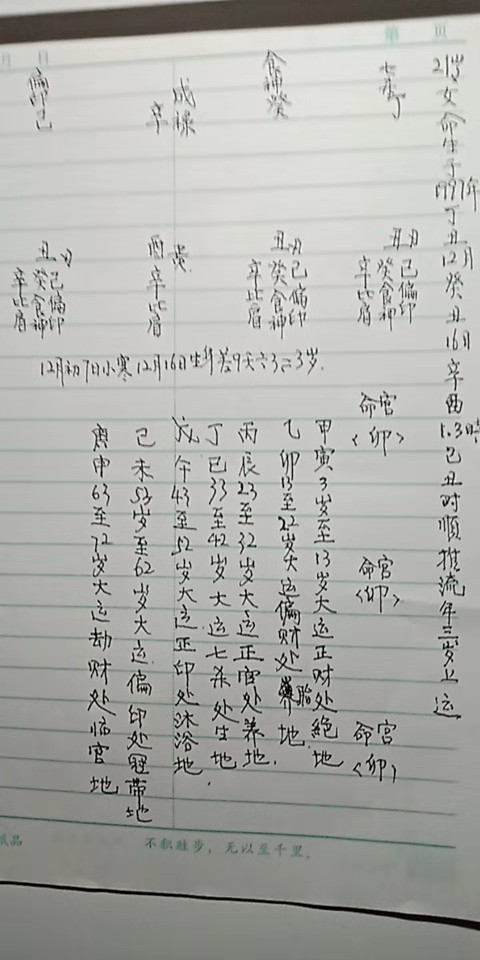 21岁女命生于1997年丁丑12月癸丑16日辛酉1.3时己丑时顺推流年三岁上运
七杀丁
食神癸
辛
偏印己
丑
己偏印
癸食神
辛比肩
丑
己偏印
癸食神
辛比肩
酉
辛比肩
丑
己偏印
癸食神
辛比肩
12月初7日小寒12月16日生年差9天
3岁.
命宫
<卯>
命宫
<卯>
命宫
<卯>
甲寅3岁至13岁大运正财处絕地
乙卯13至22岁大运偏财处胎地.
丙辰23至32岁大运正官处养地.
丁巳33至42岁大运七杀处生地.
戊午43至52岁大运正印处沐浴地
己未53岁至62岁大运偏印处冠带地
庚申63至72岁大运劫财处临官地
第 页
月 日
不积跬步，无以至千里.
纸品